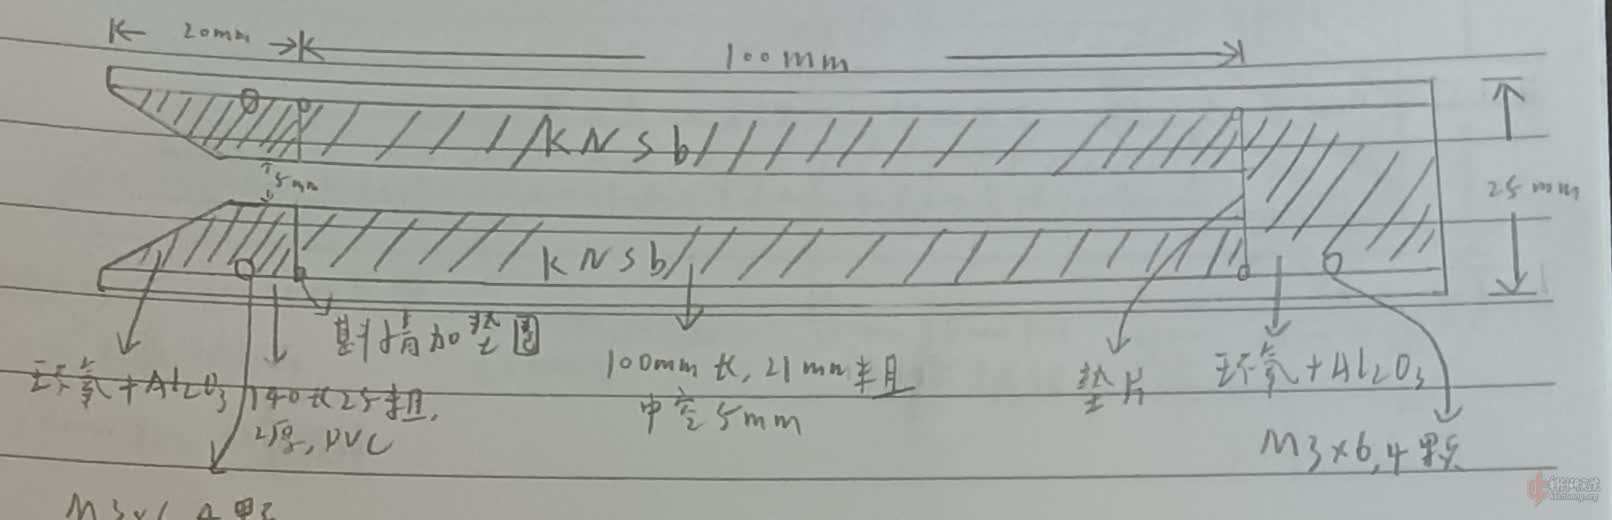 20mm
100mm
KNSb
5mm
25mm
KNSb
斟情加垫圈
环氧+Al2O3
140长25粗,
2厚,PVC
100mm长,21mm粗
中空5mm
垫片
环氧+Al2O3
M3x6,4颗
科创研究院
kechuang.org